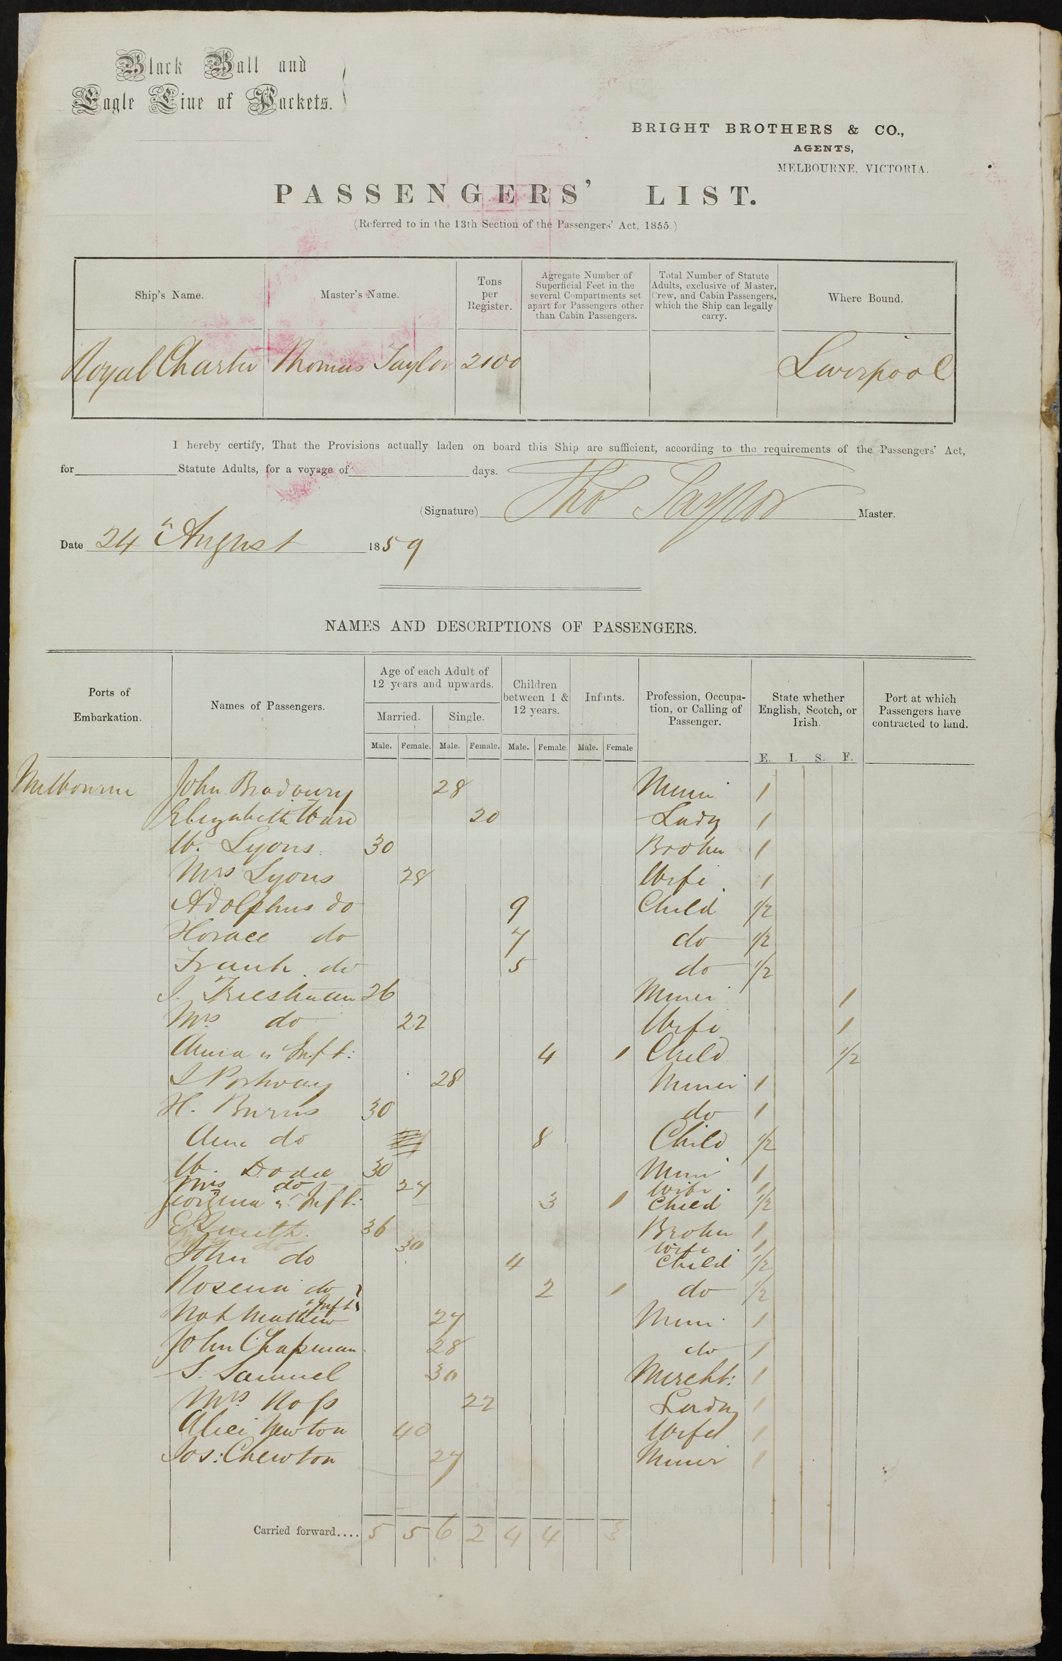 Black Ball and
Eagle Line of Packets.
BRIGHT BROTHERS & CO.,
AGENTS,
MELBOURNE, VICTORIA.
PASSENGERS' LIST.
(Referred to in the 13th Section of the Passengers' Act, 1855.)
Ship's Name. Master's Name. Tons per Register. Agregate Number of Superficial Feet in the several Compartments set apart for Passengers other than Cabin Passengers. Total Number of Statute Adults, exclusive of Master, Crew, and Cabin Passengers, which the Ship can legally carry. Where Bound.
Royal Charter Thomas Taylor 2100 Liverpool
I hereby certify, That the Provisions actually laden on board this Ship are sufficient, according to the requirements of the Passengers' Act,
for Statute Adults, for a voyage of days.
(Signature) Thos Taylor Master.
Date 24th August 1859
NAMES AND DESCRIPTIONS OF PASSENGERS.
Ports of Embarkation. Names of Passengers. Age of each Adult of 12 years and upwards. Children between 1 & 12 years. Infants. Profession, Occupation, or Calling of Passenger. State whether English, Scotch, or Irish. Port at which Passengers have contracted to land.
Married. Single.
Male. Female. Male. Female. Male. Female. Male. Female E. I. S. F.
Melbourne John Bradbury 28 Miner 1
Elizabeth Ward 20 Lady 1
W. Lyons 30 Broker 1
Mrs Lyons 28 Wife 1
Adolphus do 9 Child 1/2
Horace do 7 do 1/2
Frank do 5 do 1/2
26 Miner 1
Mrs do 22 Wife 1
Anna & Inft: 4 1 Child 1/2
28 Miner 1
H. Burns 30 do 1
Ann do 8 Child 1/2
W. 30 Miner 1
Mrs do 27 Wife 1
Georgina & Inft: 3 1 Child 1/2
E Smith 36 Broker 1
30 Wife 1
John do 4 Child 1/2
Rosena do & Inft 2 1 do 1/2
Nat Mathew 27 Miner 1
John Chapman 28 do 1
S. Samuel 30 Mercht: 1
Mrs 22 Lady 1
Alice Newton 40 Wife 1
Jos: Chewton 27 Miner 1
Carried forward.... 5 5 6 2 4 4 3